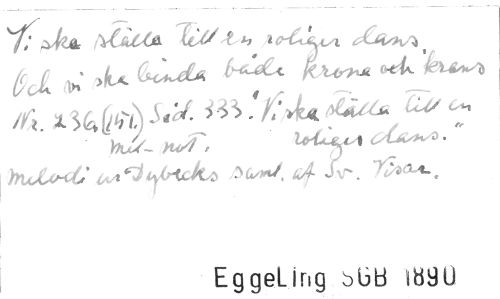 Vi ska ställa till en roliger dans,
Och vi ska binda både krona och krans
Nr. 236 (151.) Sid. 333. "Vi ska ställa till en
mel-not. roliger dans."
melodi ur Dybecks saml. af Sv. Visor.
EggeLing SGB 1890